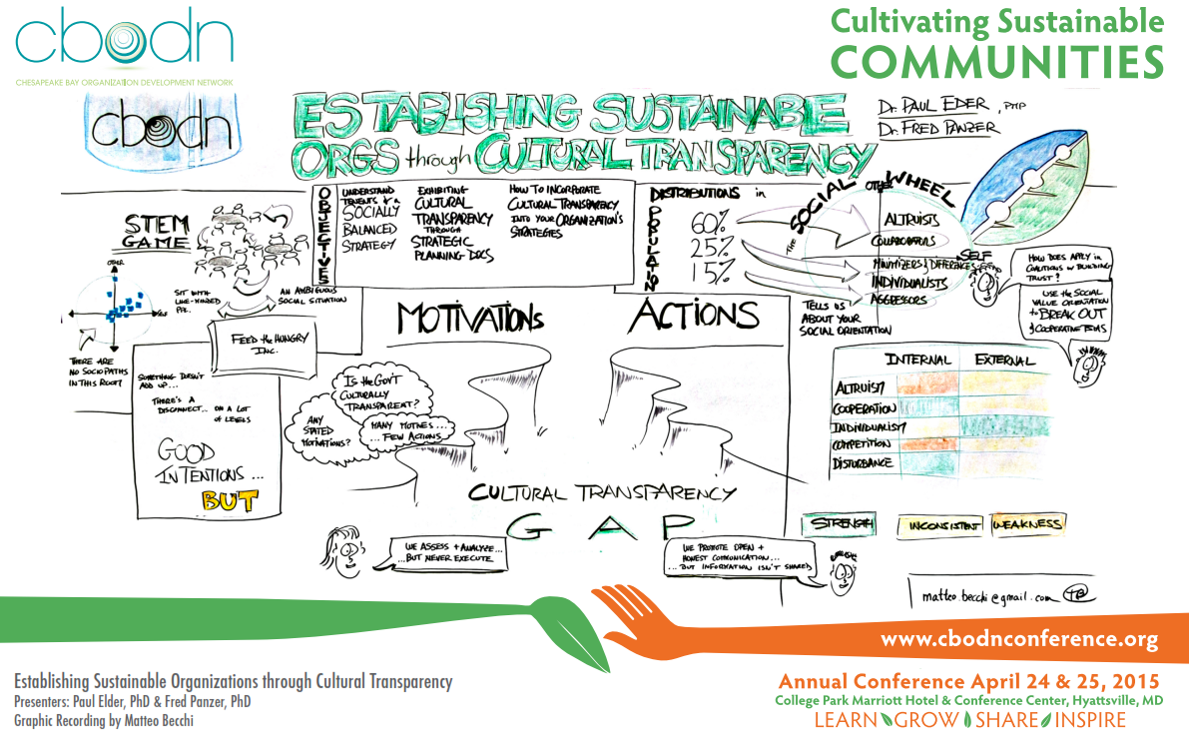 cbodn
CHESAPEAKE BAY ORGANIZATION DEVELOPMENT NETWORK
Cultivating Sustainable
COMMUNITIES
cbodn
ESTABLISHING SUSTAINABLE
ORGS through CULTURAL TRANSPARENCY
Dr. PAUL EDER, PMP
Dr. FRED PANZER
STEM
GAME
OTHER
SELF
SIT WITH
LIKE-MINDED
PPL.
AN AMBIGUOUS
SOCIAL SITUATION
THERE ARE
NO SOCIOPATHS
IN THIS ROOM
OBJECTIVES
UNDERSTAND
TENENTS of a
SOCIALLY
BALANCED
STRATEGY
EXHIBITING
CULTURAL
TRANSPARENCY
THROUGH
STRATEGIC
PLANNING DOCS
HOW TO INCORPORATE
CULTURAL TRANSPARENCY
INTO YOUR ORGANIZATION'S
STRATEGIES
DISTRIBUTIONS in
POPULATION
60%
25%
15%
THE SOCIAL WHEEL
OTHER
SELF
ALTRUISTS
COLLABORATORS
MINIMIZERS of DIFFERENCES
INDIVIDUALISTS
AGGRESSORS
TELLS US
ABOUT YOUR
SOCIAL ORIENTATION
HOW DOES APPLY IN
COALITIONS w BUILDING
TRUST?
USE THE SOCIAL
VALUE ORIENTATION
to BREAK OUT
COOPERATIVE ITEMS
FEED the HUNGRY
INC.
SOMETHING DOESN'T
ADD UP...
THERE'S A
DISCONNECT... ON A LOT
of LEVELS
GOOD
INTENTIONS ...
BUT
MOTIVATIONS
ACTIONS
IS the GOV'T
CULTURALLY
TRANSPARENT?
ANY
STATED
MOTIVATIONS?
MANY MOTIVES...
...FEW ACTIONS
CULTURAL TRANSPARENCY
GAP
WE ASSESS + ANALYZE...
...BUT NEVER EXECUTE
WE PROMOTE OPEN +
HONEST COMMUNICATION...
...BUT INFORMATION ISN'T SHARED
INTERNAL EXTERNAL
ALTRUISM
COOPERATION
INDIVIDUALISM
COMPETITION
DISTURBANCE
STRENGTH INCONSISTENT WEAKNESS
matteo.becchi@gmail.com
www.cbodnconference.org
Establishing Sustainable Organizations through Cultural Transparency
Presenters: Paul Elder, PhD & Fred Panzer, PhD
Graphic Recording by Matteo Becchi
Annual Conference April 24 & 25, 2015
College Park Marriott Hotel & Conference Center, Hyattsville, MD
LEARN GROW SHARE INSPIRE